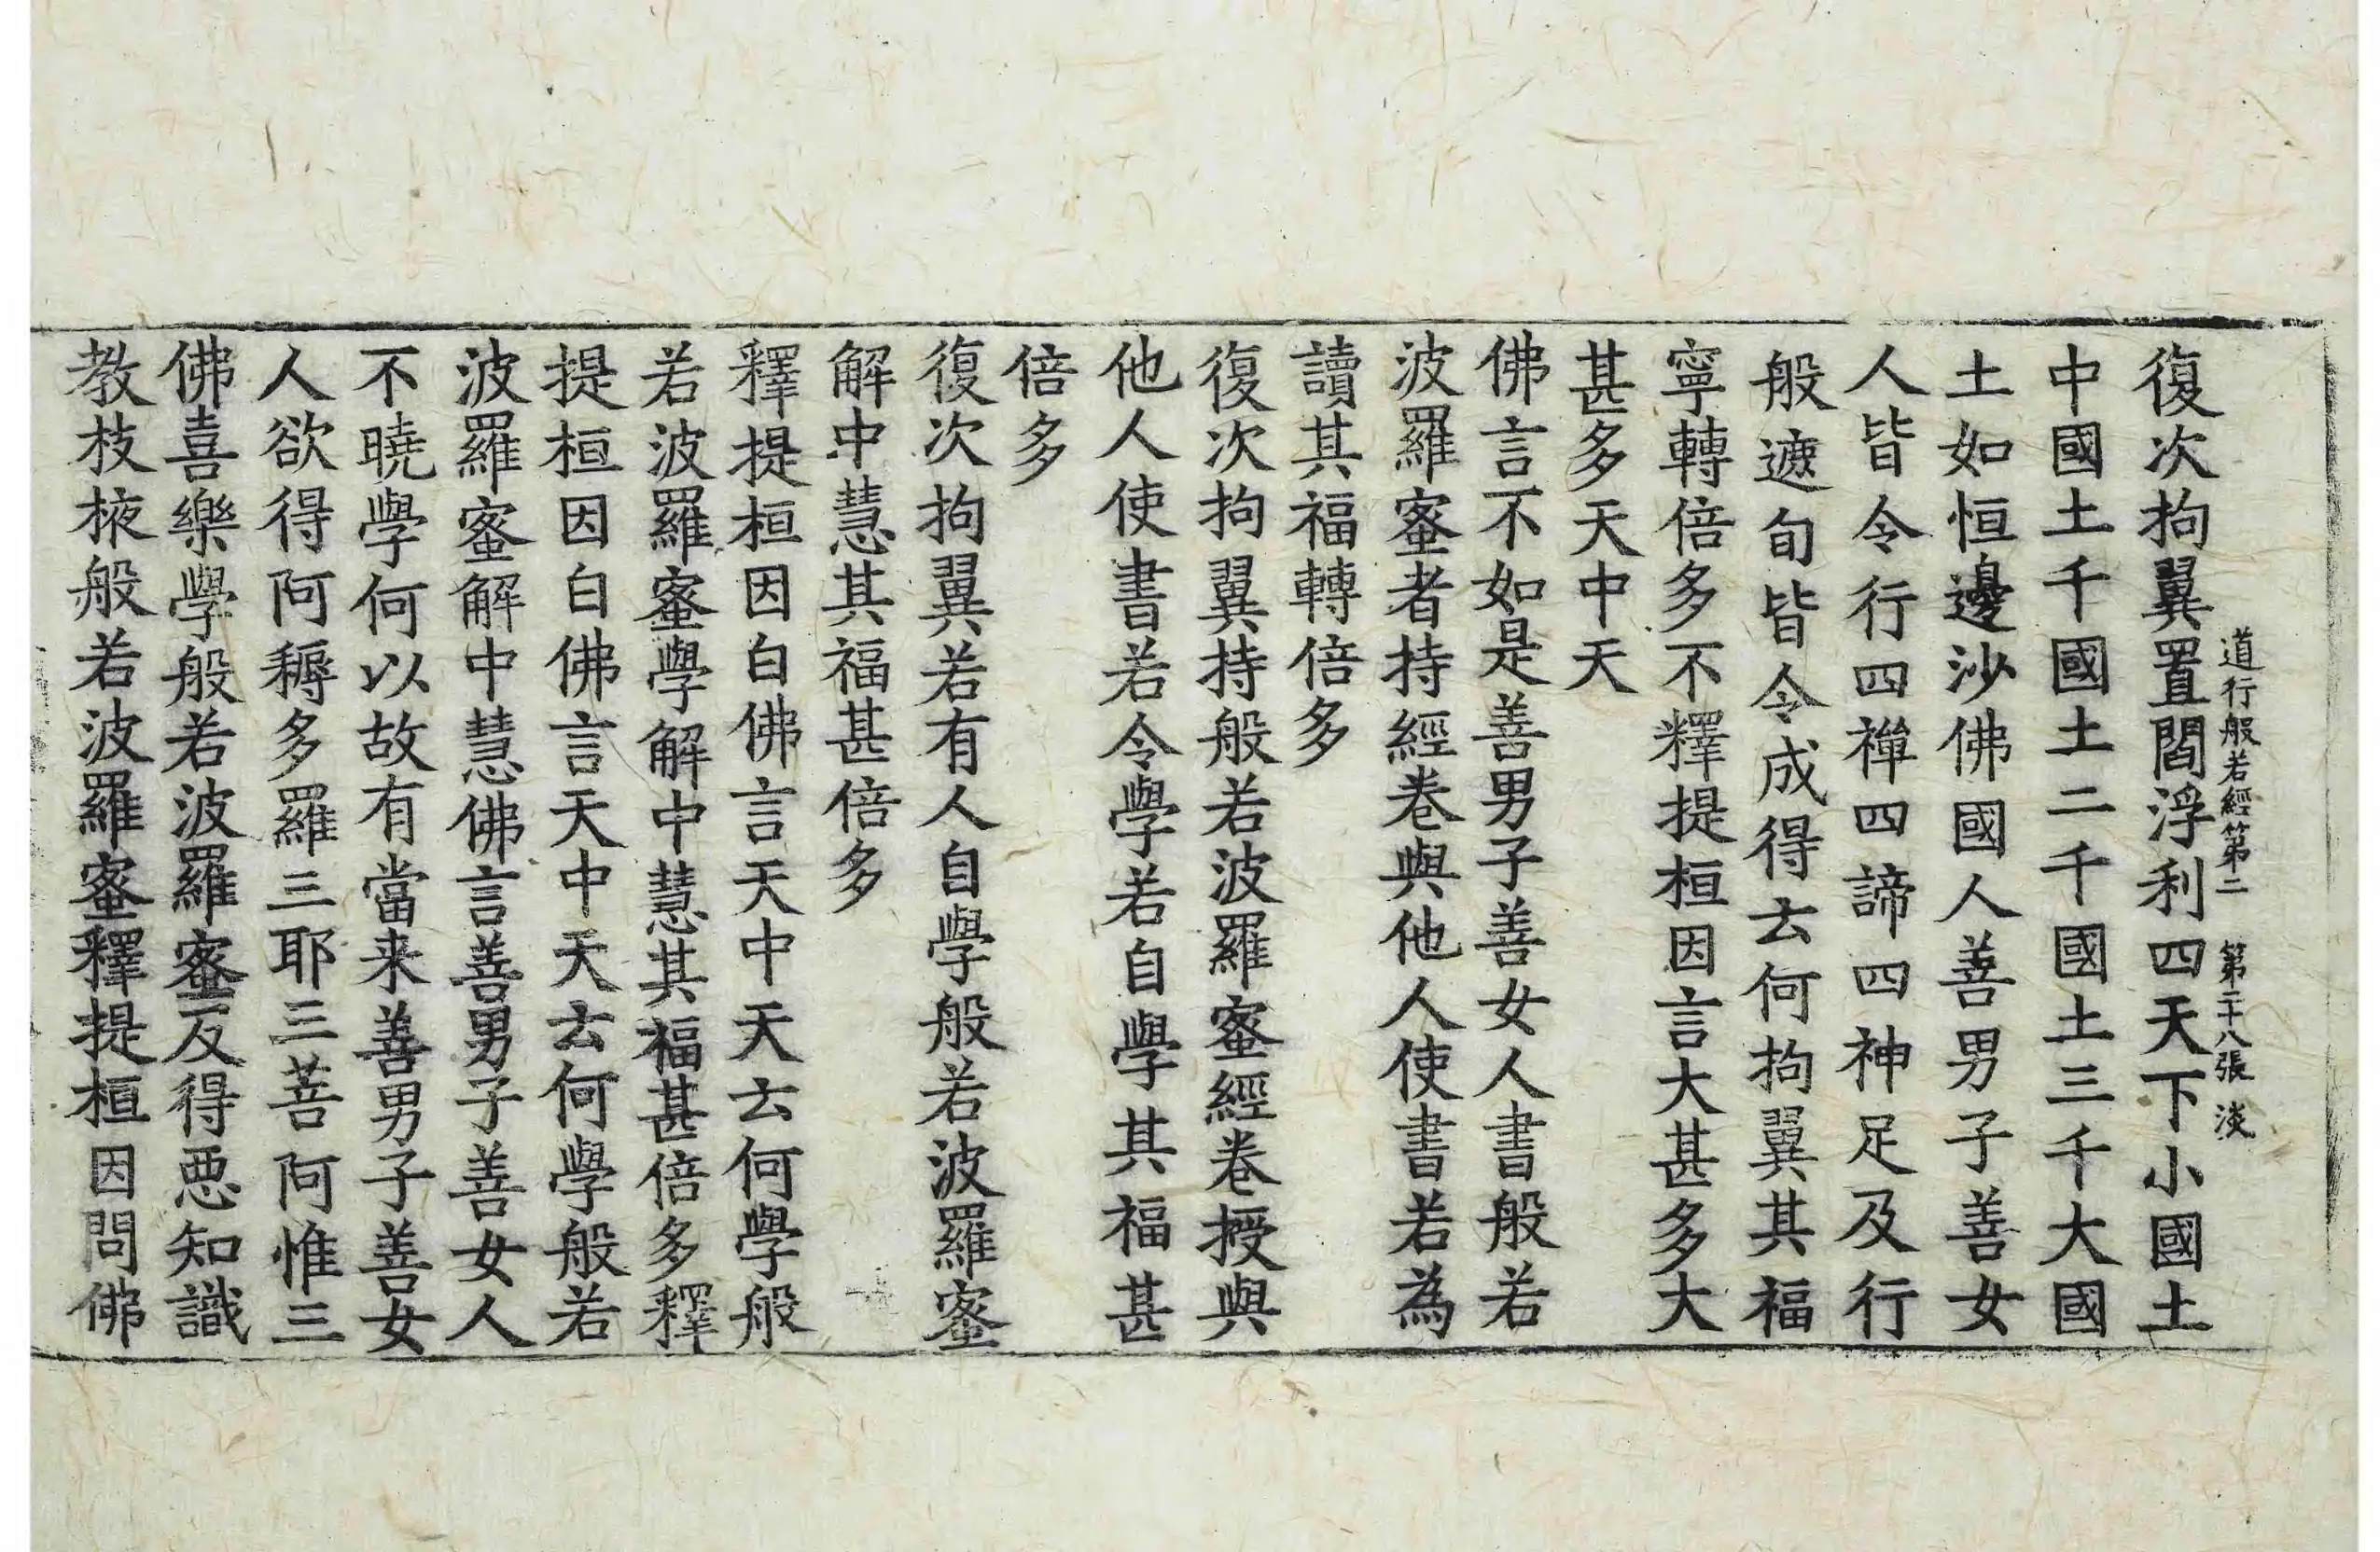 道行般若經第二 第二十八張 淡
復次拘翼置閻浮利四天下小國土
中國土千國土二千國土三千大國
土如恒邊沙佛國人善男子善女
人皆令行四禪四諦四神足及行
般遮旬皆令成得去何拘翼其福
寧轉倍多不釋提桓因言大甚多大
甚多天中天
佛言不如是善男子善女人書般若
波羅蜜者持經卷與他人使書若為
讀其福轉倍多
復次拘翼持般若波羅蜜經卷授與
他人使書若令學若自學其福甚
倍多
復次拘翼若有人自學般若波羅蜜
解中慧其福甚倍多
釋提桓因白佛言天中天云何學般
若波羅蜜學解中慧其福甚倍多釋
提桓因白佛言天中天云何學般若
波羅蜜解中慧佛言善男子善女人
不曉學何以故有當来善男子善女
人欲得阿耨多羅三耶三菩阿惟三
佛喜樂學般若波羅蜜反得惡知識
教枝掖般若波羅蜜釋提桓因問佛